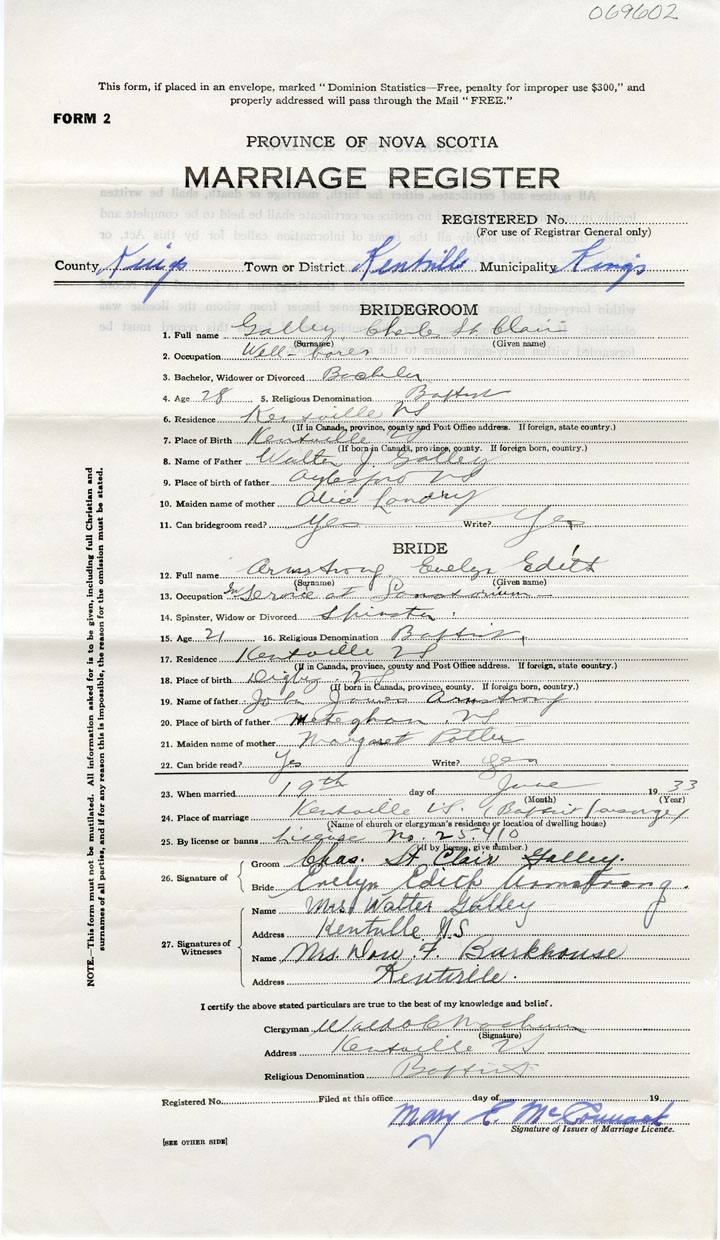 069602
This form, if placed in an envelope, marked "Dominion Statistics—Free, penalty for improper use $300," and
properly addressed will pass through the Mail "FREE."
FORM 2
PROVINCE OF NOVA SCOTIA
MARRIAGE REGISTER
REGISTERED No.
(For use of Registrar General only)
County Kings Town or District Kentville Municipality Kings
BRIDEGROOM
1. Full name Galley Charles St Clair
(Surname) (Given name)
2. Occupation Well-borer
3. Bachelor, Widower or Divorced Bachelor
4. Age 28 5. Religious Denomination Baptist
6. Residence Kentville NS
(If in Canada, province, county and Post Office address. If foreign, state country.)
7. Place of Birth Kentville NS
(If born in Canada, province, county. If foreign born, country.)
8. Name of Father Walter J Galley
9. Place of birth of father Aylesford NS
10. Maiden name of mother Alice Landry
11. Can bridegroom read? Yes Write? Yes
BRIDE
12. Full name Armstrong Evelyn Edith
(Surname) (Given name)
13. Occupation In Service at Sanatorium
14. Spinster, Widow or Divorced Spinster
15. Age 21 16. Religious Denomination Baptist
17. Residence Kentville NS
(If in Canada, province, county and Post Office address. If foreign, state country.)
18. Place of birth Digby NS
(If born in Canada, province, county. If foreign born, country.)
19. Name of father John James Armstrong
20. Place of birth of father Meteghan NS
21. Maiden name of mother Margaret Potter
22. Can bride read? Yes Write? Yes
23. When married 19th day of June 1933
(Month) (Year)
24. Place of marriage Kentville NS. (Baptist Parsonage)
(Name of church or clergyman's residence or location of dwelling house)
25. By license or banns License No. 25410
(If by license, give number.)
26. Signature of
Groom Chas. St Clair Galley.
Bride Evelyn Edith Armstrong.
27. Signatures of Witnesses
Name Mrs Walter Galley
Address Kentville NS
Name Mrs. F. Burkhouse
Address Kentville.
I certify the above stated particulars are true to the best of my knowledge and belief.
Clergyman
(Signature)
Address Kentville NS
Religious Denomination Baptist
Registered No. Filed at this office day of 19
Mary E. McCormack
Signature of Issuer of Marriage Licence.
[SEE OTHER SIDE]
NOTE.—This form must not be mutilated. All information asked for is to be given, including full Christian and
surnames of all parties, and if for any reason this is impossible, the reason for the omission must be stated.